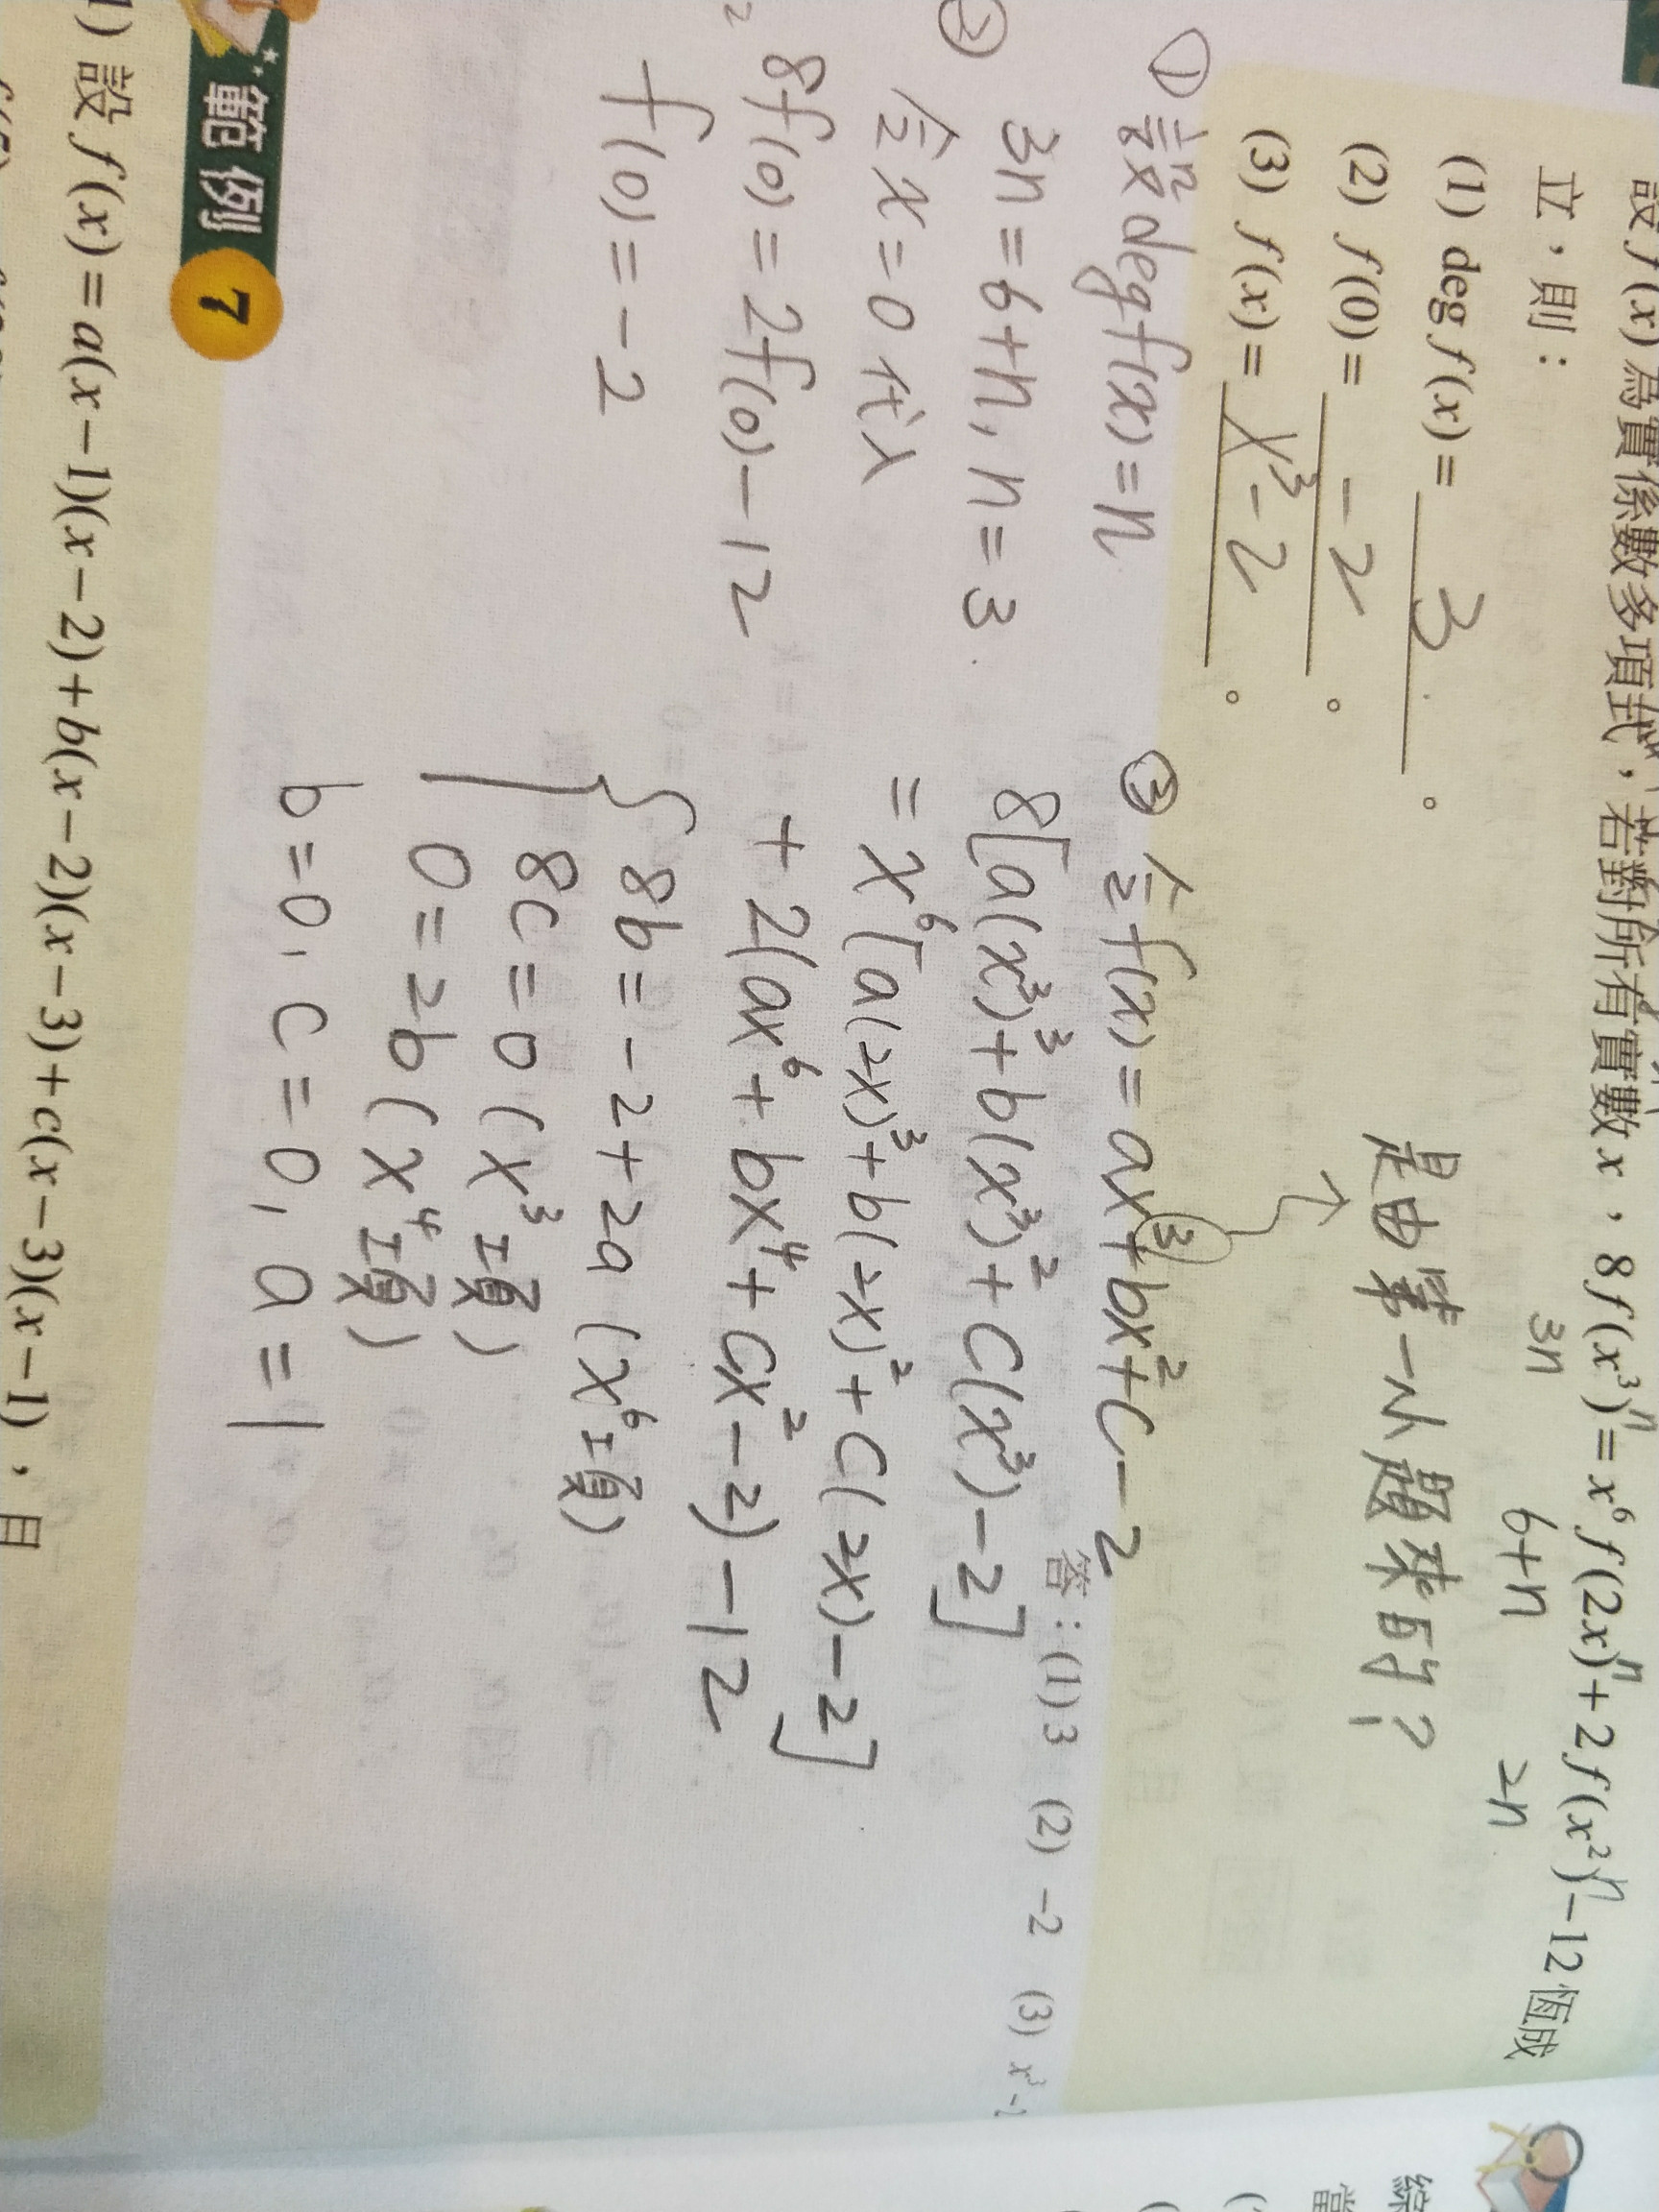 設 f(x) 為實係數多項式，若對所有實數 x，8f(x³)ⁿ = x⁶f(2x)ⁿ + 2f(x²)ⁿ − 12 恆成
3n 6+n 2n
立，則：
(1) deg f(x) = 3 。
(2) f(0) = −2 。
(3) f(x) = x³−2 。
是由第一小題來的？
答：(1) 3 (2) −2 (3) x³−2
① 設 deg f(x) = n
3n = 6+n, n = 3
② 令 x = 0 代入
8f(0) = 2f(0) − 12
f(0) = −2
③ 令 f(x) = ax³+bx²+c−2
8[a(x³)³+b(x³)²+c(x³)−2]
= x⁶[a(2x)³+b(2x)²+c(2x)−2]
+ 2(ax⁶+bx⁴+cx²−2)−12
8b = −2+2a (x⁶項)
8c = 0 (x³項)
0 = 2b (x⁴項)
b = 0, c = 0, a = 1
範例 7
1) 設 f(x) = a(x−1)(x−2)+b(x−2)(x−3)+c(x−3)(x−1)，且